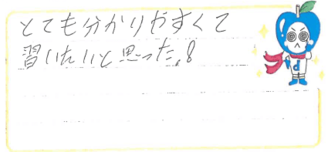 とても分かりやすくて
習いたいと思った!